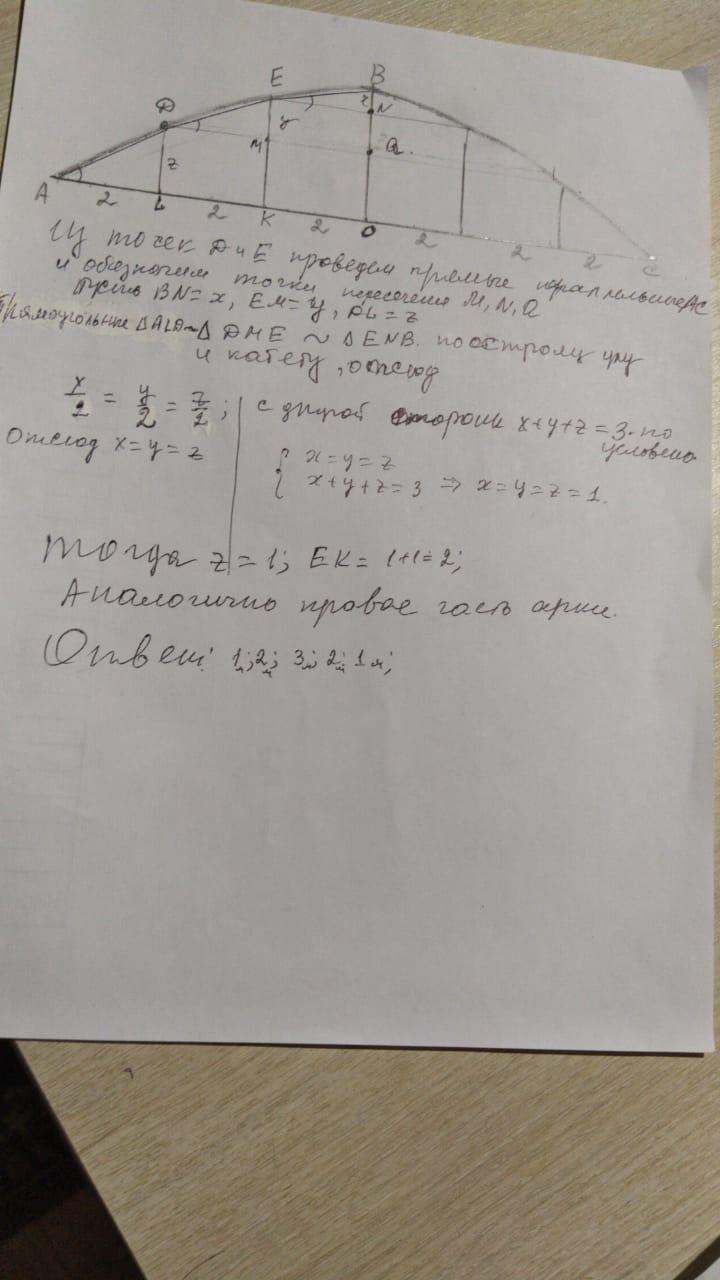 E B
D N
y
M Q
z
A 2 L 2 K 2 O 2 2 2 C
Из точек D и E проведем прямые параллельные AC
и обозначим точки пересечения M, N, Q
Пусть BN = x, EM = y, DL = z
Прямоугольные ΔALD ~ Δ DME ~ ΔENB. по острому углу
и катету, отсюд
x/2 = y/2 = z/2 ; с другой стороны x+y+z = 3 - по
условию
Отсюд x = y = z
{ x = y = z
x + y + z = 3 ⇒ x = y = z = 1.
Тогда z = 1; EK = 1+1=2;
Аналогично правое часть арки.
Ответ: 1м; 2м; 3м; 2м; 1м;